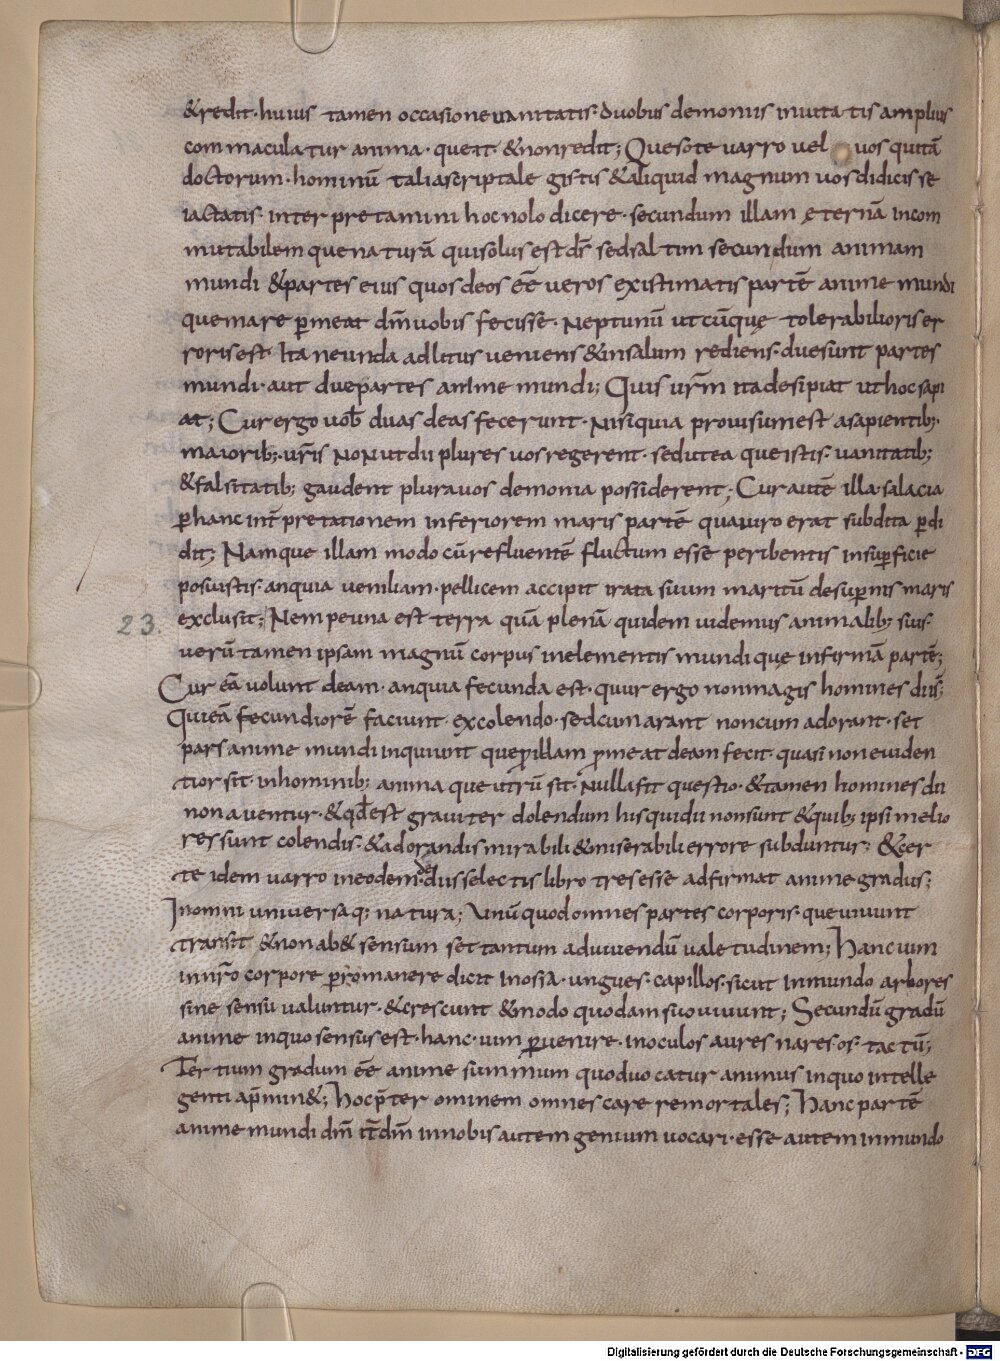 &redit· huius tamen occasione uanitatis· duobus demoniis inuita tis amplius
com macula tur anima· que it· & non redit; Queso te uarro uel uos qui tā
doctorum· hominū talia scriptale gistis & aliquid magnum uos didicis se
iactatis· inter pre tamini hoc nolo dicere· secundum illam ęternā incom
mutabilem que na turā qui solus est d̄s sed sal tim secundum animam
mundi & partes eius quos deos eē ueros existimatis partē anime mundi
que mare ꝑmeat dm̄ uobis fecisse· Neptunū ut cūque tolerabilioris er
roris est· Ita ne unda ad litus ueniens & in salum rediens· due sunt partes
mundi· aut due partes anime mundi; Quis urm̄ ita desipiat ut hoc sapi
at; Cur ergo uob̄ duas deas fecerunt· Nisi quia prouisum est a sapientib;·
maiorib;· ur̄is Non ut dii plures uos regerent· sed ut ea que istis uanitatib;
& falsitatib; gaudent plura uos demonia possiderent; Cur autē illa salacia
ꝑ hanc int̄pretationem inferiorem maris partē qua uiro erat subdita ꝑdi
dit; Namque illam modo cū refluentē fluctum esse peribentis in suꝑficie
posuistis· an quia ueniliam· pellicem accipit irata suum maritū de suꝑnis maris
23. exclusit; Nempe una est terra quā plenā quidem uidemus animalib; suis·
uerū tamen ipsam magnū corpus in elementis mundi quę infirmā partē;
Cur eā uolunt deam· an quia fecunda est· quur ergo non magis homines dii s̄;
Qui eā fecundiorē faciunt· excolendo· sed cum arant non cum adorant· set
pars anime mundi inquiunt que ꝑ illam ꝑmeat deam fecit· quasi non euiden
tior sit· in hominib; anima que utrū sit· Nulla fit questio· & tamen homines dii
non auentur· & qd̄ est grauiter dolendum his qui dii non sunt & quib; ipsi melio
res sunt colendis· & adorandis mirabili & miserabili errore subduntur; & cer
te idem uarro in eodem de diis selectis libro tres esse adfirmat anime gradus;
In omni uniuersa q; na tura; Unū quod omnes partes corporis· que uiuunt
transit & non ab& sensum set tantum ad uiuendū uale tudinem; Hanc uim
in nr̄o corpore ꝑromanere dicit in ossa· ungues· capillos· sicut in mundo arbores
sine sensu ualuntur· & crescunt & modo quodam suo uiuunt; Secundū gradū
anime in quo sensus est· hanc· uim ꝑuenire· in oculos aures nares os· tac tū;
Ter tium gradum eē anime summum quod uo catur animus in quo intelle
genti ap̄min&; hoc p̄ter ominem omnes care re mortales; Hanc partē
anime mundi dm̄ in nobis autem genium uocari· esse autem in mundo
Digitalisierung gefördert durch die Deutsche Forschungsgemeinschaft - DFG